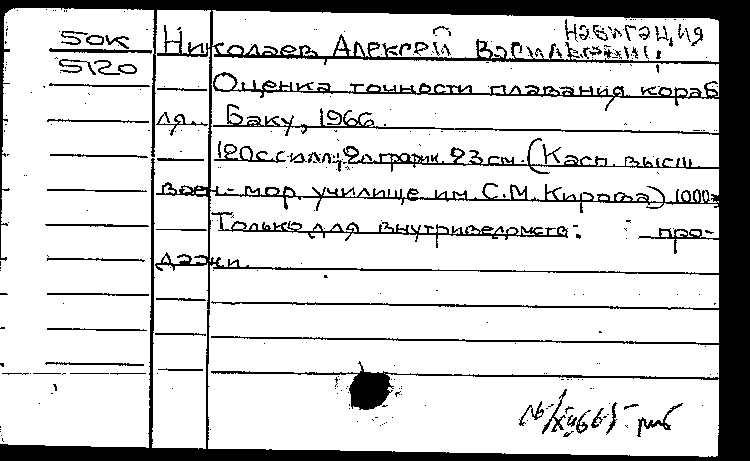 НАВИГАЦИЯ
50К Николаев, Алексей Васильевич.
5120
Оценка точности плавания кораб
ля. Баку, 1966.
120с.с илл.; 2л.график. 23см. (Касп. высш.
воен.-мор. училище им. С.М. Кирова) 1000э
Только для внутриведомств. про-
дажи.